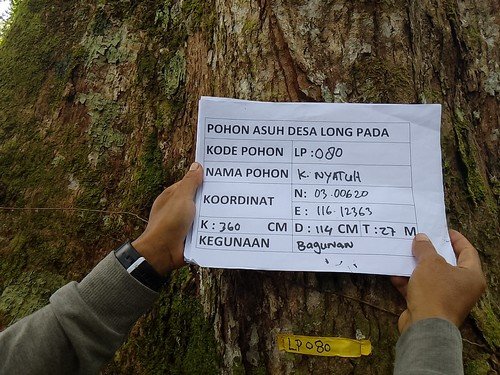 POHON ASUH DESA LONG PADA
KODE POHON LP : 080
NAMA POHON K. NYATUH
KOORDINAT N : 03.00620
E : 116.12363
K : 360 CM D : 114 CM T : 27 M
KEGUNAAN Bagunan
LP 080